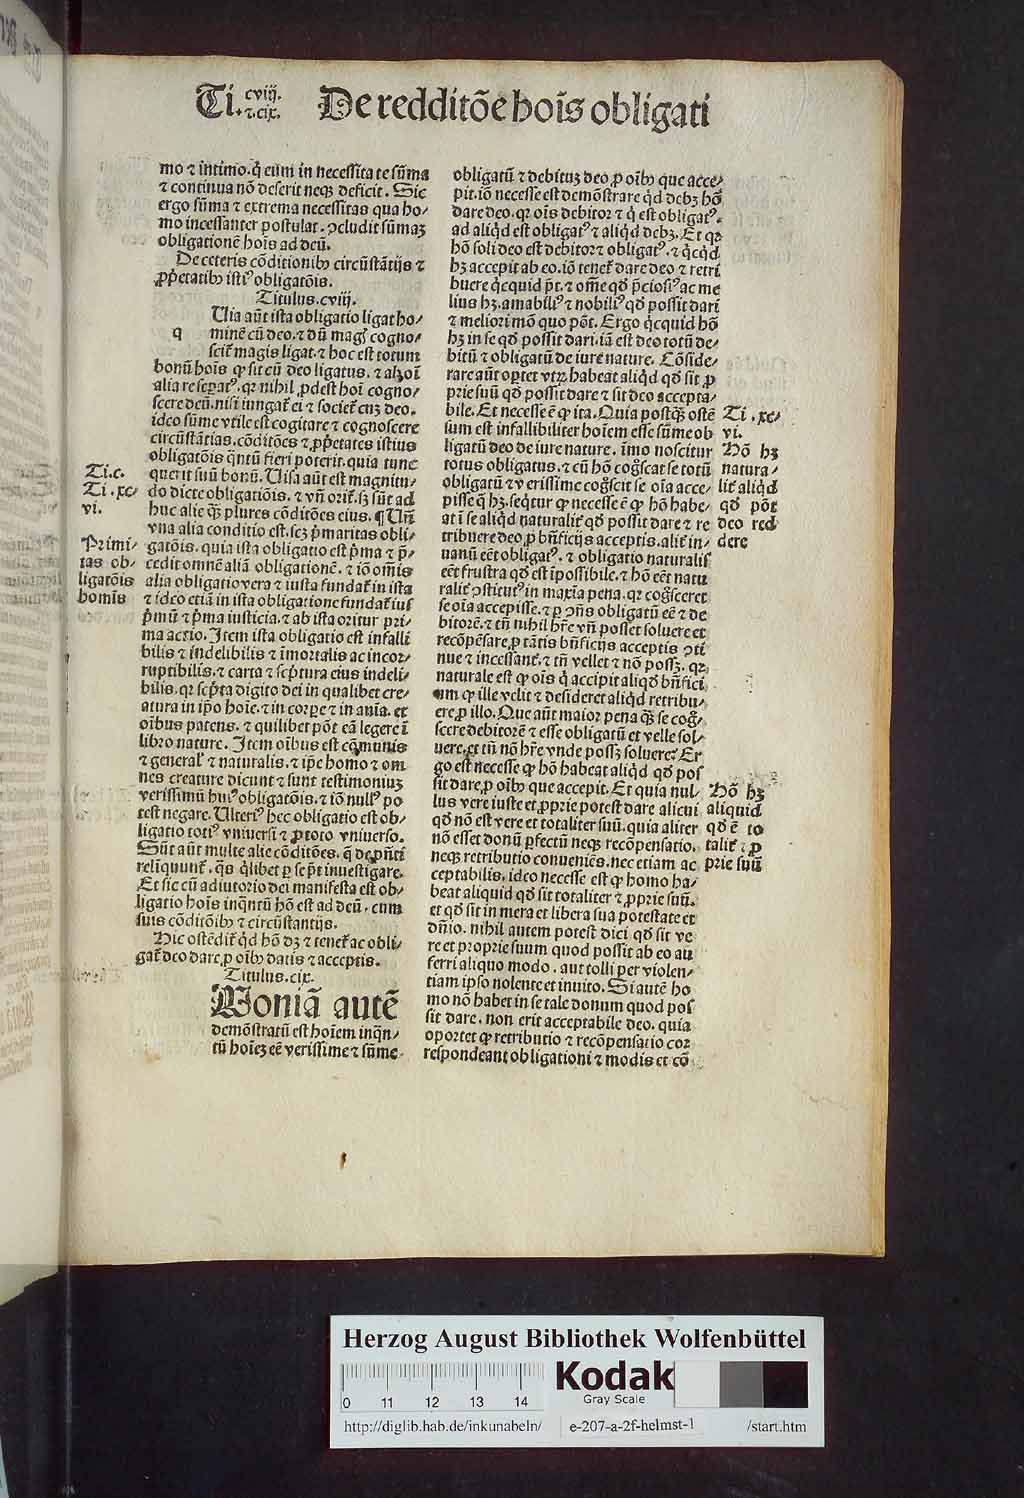 Ti. cviij.
⁊ .cix.
De redditõe hoĩs obligati
mo ⁊ intimo. q̃ eum in necessitate sũma
⁊ continua nõ deserit neqȝ deficit. Sic
ergo sũma ⁊ extrema necessitas qua ho⸗
mo incessanter postulat. ꝯcludit sũmaȝ
obligationẽ hoĩs ad deũ.
De ceteris cõditionibꝰ circũstãtijs ⁊
ꝓp̃etatibꝰ istiꝰ obligatõis.
Titulus. cviij.
q
Uia aũt ista obligatio ligat ho⸗
minẽ cũ deo. ⁊ dũ magꝭ cogno⸗
scit̃ magis ligat. ⁊ hoc est totum
bonũ hoĩs ꝙ sit cũ deo ligatus. ⁊ ab oĩ
alia re sepatꝰ. qꝛ nihil ꝓdest hoĩ cogno⸗
scere deũ. nisi iungat̃ ei ⁊ societ̃ cuȝ deo.
ideo sũme vtile est cogitare ⁊ cognoscere
circũstãtias. cõditões ⁊ ꝓp̃etates istius
obligatõis q̃ntũ fieri poterit. quia tunc
querit suũ bonũ. Uisa aũt est magnitu⸗
do dicte obligatiõis. ⁊ vñ orit̃. sȝ sũt ad
huc alie q̃ȝ plures cõditões eius. ¶ Uñ
vna alia conditio est. scȝ p̃maritas obli⸗
gatõis. quia ista obligatio est p̃ma ⁊ p̃⸗
cedit omnẽ aliã obligationẽ. ⁊ iõ om̃is
alia obligatio vera ⁊ iusta fundat̃ in ista
⁊ ideo etiã in ista obligatione fundat̃ ius
p̃mũ ⁊ p̃ma iusticia. ⁊ ab ista oritur pri⸗
ma actio. Item ista obligatio est infalli
bilis ⁊ indelibilis ⁊ ĩmortalis ac incor⸗
ruptibilis. ⁊ carta ⁊ scp̃tura eius indeli⸗
bilis. qꝛ scp̃ta digito dei in qualibet cre⸗
atura in ip̃o hoĩe. ⁊ in corpe ⁊ in aĩa. et
oĩbus patens. ⁊ quilibet põt eã legere ĩ
libro nature. Item oĩbus est cõmunis
⁊ general̃ ⁊ naturalis. ⁊ ip̃e homo ⁊ om
nes creature dicunt ⁊ sunt testimoniuȝ
verissimũ huiꝰ obligatõis. ⁊ iõ nullꝰ po
test negare. Ulteriꝰ hec obligatio est ob⸗
ligatio totiꝰ vniuersi ⁊ ꝓ toto vniuerso.
Sũt aũt multe alie cõditões. q̃ de p̃nti
relĩquunt̃. q̃s q̃libet ꝑ se põt inuestigare.
Et sic cũ adiutorio dei manifesta est ob⸗
ligatio hoĩs inq̃ntũ hõ est ad deũ. cum
suis cõditõibꝰ ⁊ circũstantijs.
Hic ostẽdit̃ q̃d hõ dȝ ⁊ tenet̃ ac obli⸗
gat̃ deo dare. ꝓ oĩbꝰ datis ⁊ acceptis.
Titulus. cix.
Qoniã autẽ
demõstratũ est hoĩem inq̃n⸗
tũ hoĩeȝ eẽ verissime ⁊ sũme
obligatũ ⁊ debituȝ deo. ꝓ oĩbꝰ que acce⸗
pit. iõ necesse est demõstrare q̃d debȝ hõ
dare deo. qꝛ oĩs debitor ⁊ q̃ est obligatꝰ.
ad aliq̃d est obligatꝰ ⁊ aliq̃d debȝ. Et qꝛ
hõ soli deo est debitor ⁊ obligatꝰ. ⁊ q̃cq̃d
hȝ accepit ab eo. iõ tenet̃ dare deo ⁊ retri
buere q̃cquid põt. ⁊ om̃e qd̃ p̃ciosiꝰ ac me
lius hȝ. amabiliꝰ ⁊ nobiliꝰ qd̃ possit dari
⁊ meliori mõ quo põt. Ergo q̃cquid hõ
hȝ in se qd̃ possit dari. iã est deo totũ de⸗
bitũ ⁊ obligatũ de iure nature. Cõside⸗
rare aũt oportet vtrũ habeat aliq̃d qd̃ sit ꝓ
prie suũ qd̃ possit dare ⁊ sit deo accepta⸗
bile. Et necesse ẽ ꝙ ita. Quia postq̃ȝ ostẽ
sum est infallibiliter hoĩem esse sũme ob
ligatũ deo de iure nature. ĩmo noscitur
totus obligatus. ⁊ cũ hõ cog̃scat se totũ
obligatũ ⁊ verissime cog̃scit se oĩa acce⸗
pisse q̃ hȝ. seq̃tur ꝙ necesse ẽ ꝙ hõ habe⸗
at ĩ se aliq̃d naturalit̃ qd̃ possit dare ⁊ re
tribuere deo ꝓ bñficijs acceptis. alit̃ in⸗
uanũ eẽt obligatꝰ. ⁊ obligatio naturalis
eẽt frustra qd̃ est ĩpossibile. ⁊ hõ eẽt natu
ralit̃ ꝯstitutꝰ in maxĩa pena. qꝛ cog̃sceret
se oĩa accepisse. ⁊ ꝑ ꝯñs obligatũ eẽ ⁊ de
bitorẽ. ⁊ tñ nihil hr̃e vñ posset soluere et
recõpẽsare. ꝓ tãtis bñficijs acceptis ꝯti
nue ⁊ incessant̃. ⁊ tñ vellet ⁊ nõ possȝ. qꝛ
naturale est ꝙ oĩs q̃ accipit aliqd̃ bñfici
um ꝙ ille velit ⁊ desideret aliq̃d retribu⸗
ere ꝓ illo. Que aũt maior pena q̃ȝ se cog̃⸗
scere debitorẽ ⁊ esse obligatũ et velle sol⸗
uere. et tñ nõ hr̃e vnde possȝ soluere? Er
go est necesse ꝙ hõ habeat aliq̃d qd̃ pos
sit dare. ꝓ oĩbꝰ que accepit. Et quia nul⸗
lus vere iuste et ꝓprie potest dare alicui
qd̃ nõ est vere et totaliter suũ. quia aliter
nõ esset donũ ꝑfectũ neqȝ recõpensatio.
neqȝ retributio conueniẽs. nec etiam ac
ceptabilis. ideo necesse est ꝙ homo ha⸗
beat aliquid qd̃ sit totaliter ⁊ ꝓprie suũ.
et qd̃ sit in mera et libera sua potestate et
dñio. nihil autem potest dici qd̃ sit ve
re et proprie suum quod possit ab eo au
ferri aliquo modo. aut tolli per violen⸗
tiam ipso nolente et inuito. Si autẽ ho
mo nõ habet in se tale donum quod pos
sit dare. non erit acceptabile deo. quia
oportet ꝙ retributio ⁊ recõpensatio cor
respondeant obligationi ⁊ modis et cõ
Ti.c.
Ti .xc⸗
vi.
Primi⸗
tas ob⸗
ligatõis
homĩs
Ti .xc⸗
vi.
Hõ hȝ
natura⸗
lit̃ aliq̃d
qd̃ põt
deo red
dere
Hõ hȝ
aliquid
qd̃ ẽ to
talit̃ ⁊ ꝓ
prie suũ
Herzog August Bibliothek Wolfenbüttel
0 11 12 13 14
Kodak
Gray Scale
http://diglib.hab.de/inkunabeln/ e-207-a-2f-helmst-1 /start.htm